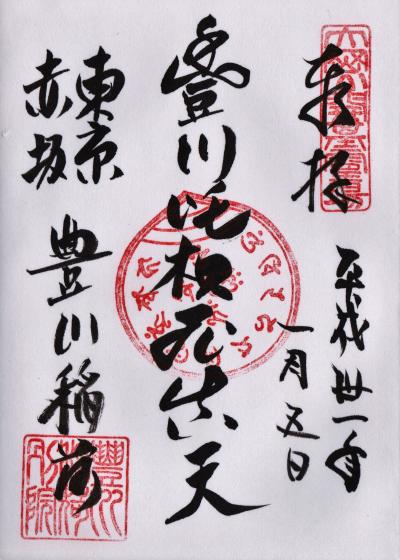 奉拝
平成卅一年
一月五日
豊川吒枳尼真天
東京
赤坂
豊川稲荷